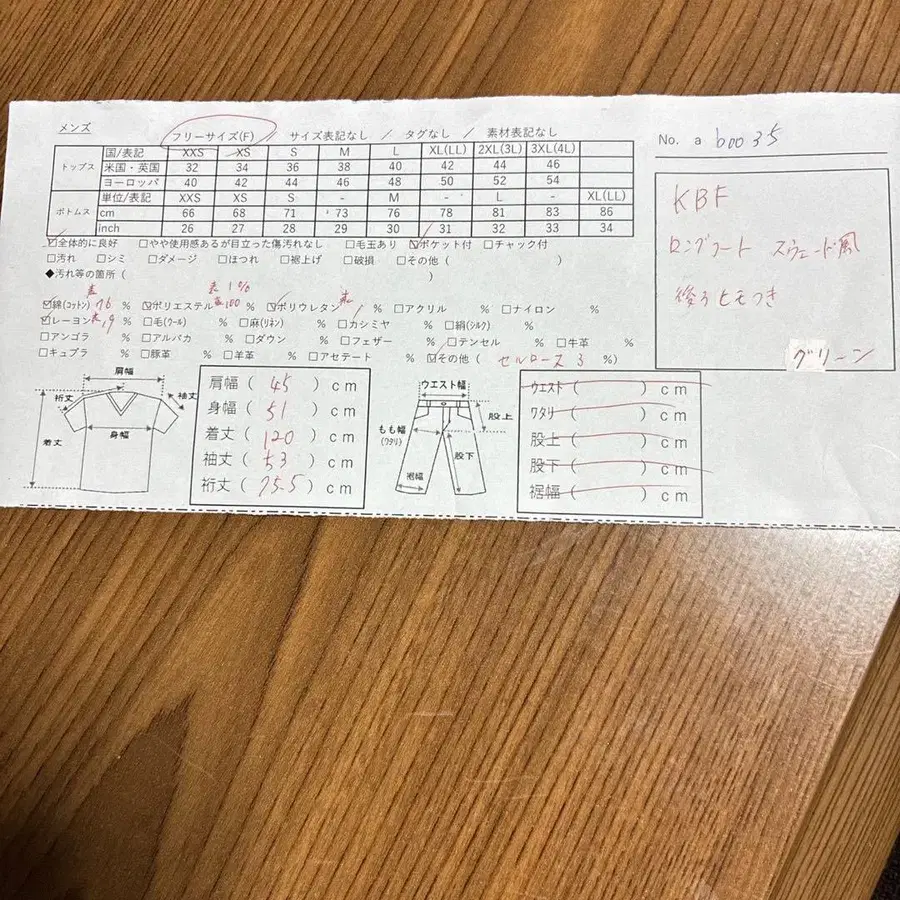 メンズ
フリーサイズ(F) / サイズ表記なし / タグなし / 素材表記なし
No. a b0035
トップス 国/表記 XXS XS S M L XL(LL) 2XL(3L) 3XL(4L)
米国・英国 32 34 36 38 40 42 44 46
ヨーロッパ 40 42 44 46 48 50 52 54
ボトムス 単位/表記 XXS XS S - M - L - XL(LL)
cm 66 68 71 73 76 78 81 83 86
inch 26 27 28 29 30 31 32 33 34
☑全体的に良好 □やや使用感あるが目立った傷汚れなし □毛玉あり ☑ポケット付 □チャック付
□汚れ □シミ □ダメージ □ほつれ □裾上げ □破損 □その他 ( )
◆汚れ等の箇所 ( )
表 1%
☑綿(コットン) 76 % ☑ポリエステル 100 % ☑ポリウレタン % □アクリル % □ナイロン %
☑レーヨン 表19 % □毛(ウール) % □麻(リネン) % □カシミヤ % □絹(シルク) %
□アンゴラ % □アルパカ % □ダウン % □フェザー % □テンセル % □牛革 %
□キュプラ % □豚革 % □羊革 % □アセテート % ☑その他 ( セルロース 3 %)
KBF
ロングコート スウェード風
後ろヒモつき
グリーン
肩幅
裄丈
袖丈
身幅
着丈
肩幅 ( 45 ) cm
身幅 ( 51 ) cm
着丈 ( 120 ) cm
袖丈 ( 53 ) cm
裄丈 ( 75.5 ) cm
ウエスト幅
股上
もも幅
(ワタリ)
股下
裾幅
ウエスト ( ) cm
ワタリ ( ) cm
股上 ( ) cm
股下 ( ) cm
裾幅 ( ) cm